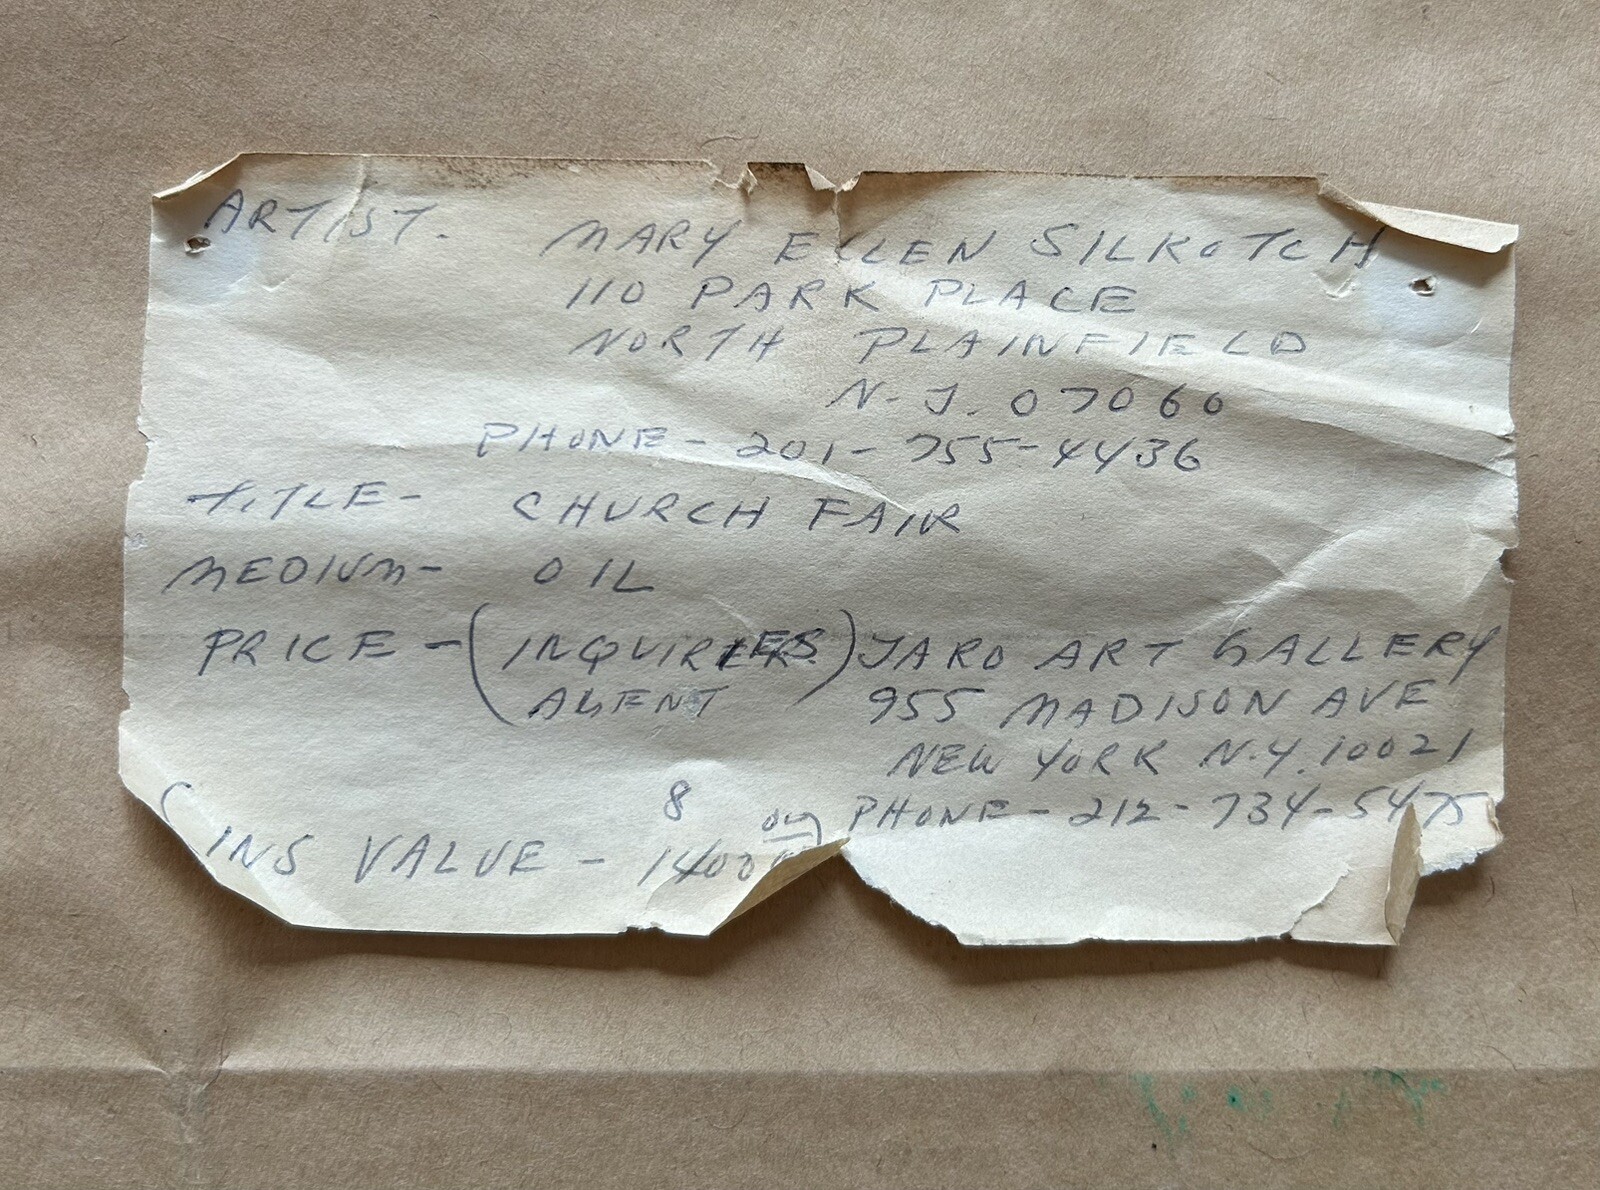 ARTIST. MARY ELLEN SILKOTCH
110 PARK PLACE
NORTH PLAINFIELD
N.J. 07060
PHONE - 201-755-4436
TITLE - CHURCH FAIR
MEDIUM - OIL
PRICE - (INQUIRIES) JARO ART GALLERY
AGENT 955 MADISON AVE
NEW YORK N.Y. 10021
PHONE - 212-734-5475
8
(INS VALUE - 1400